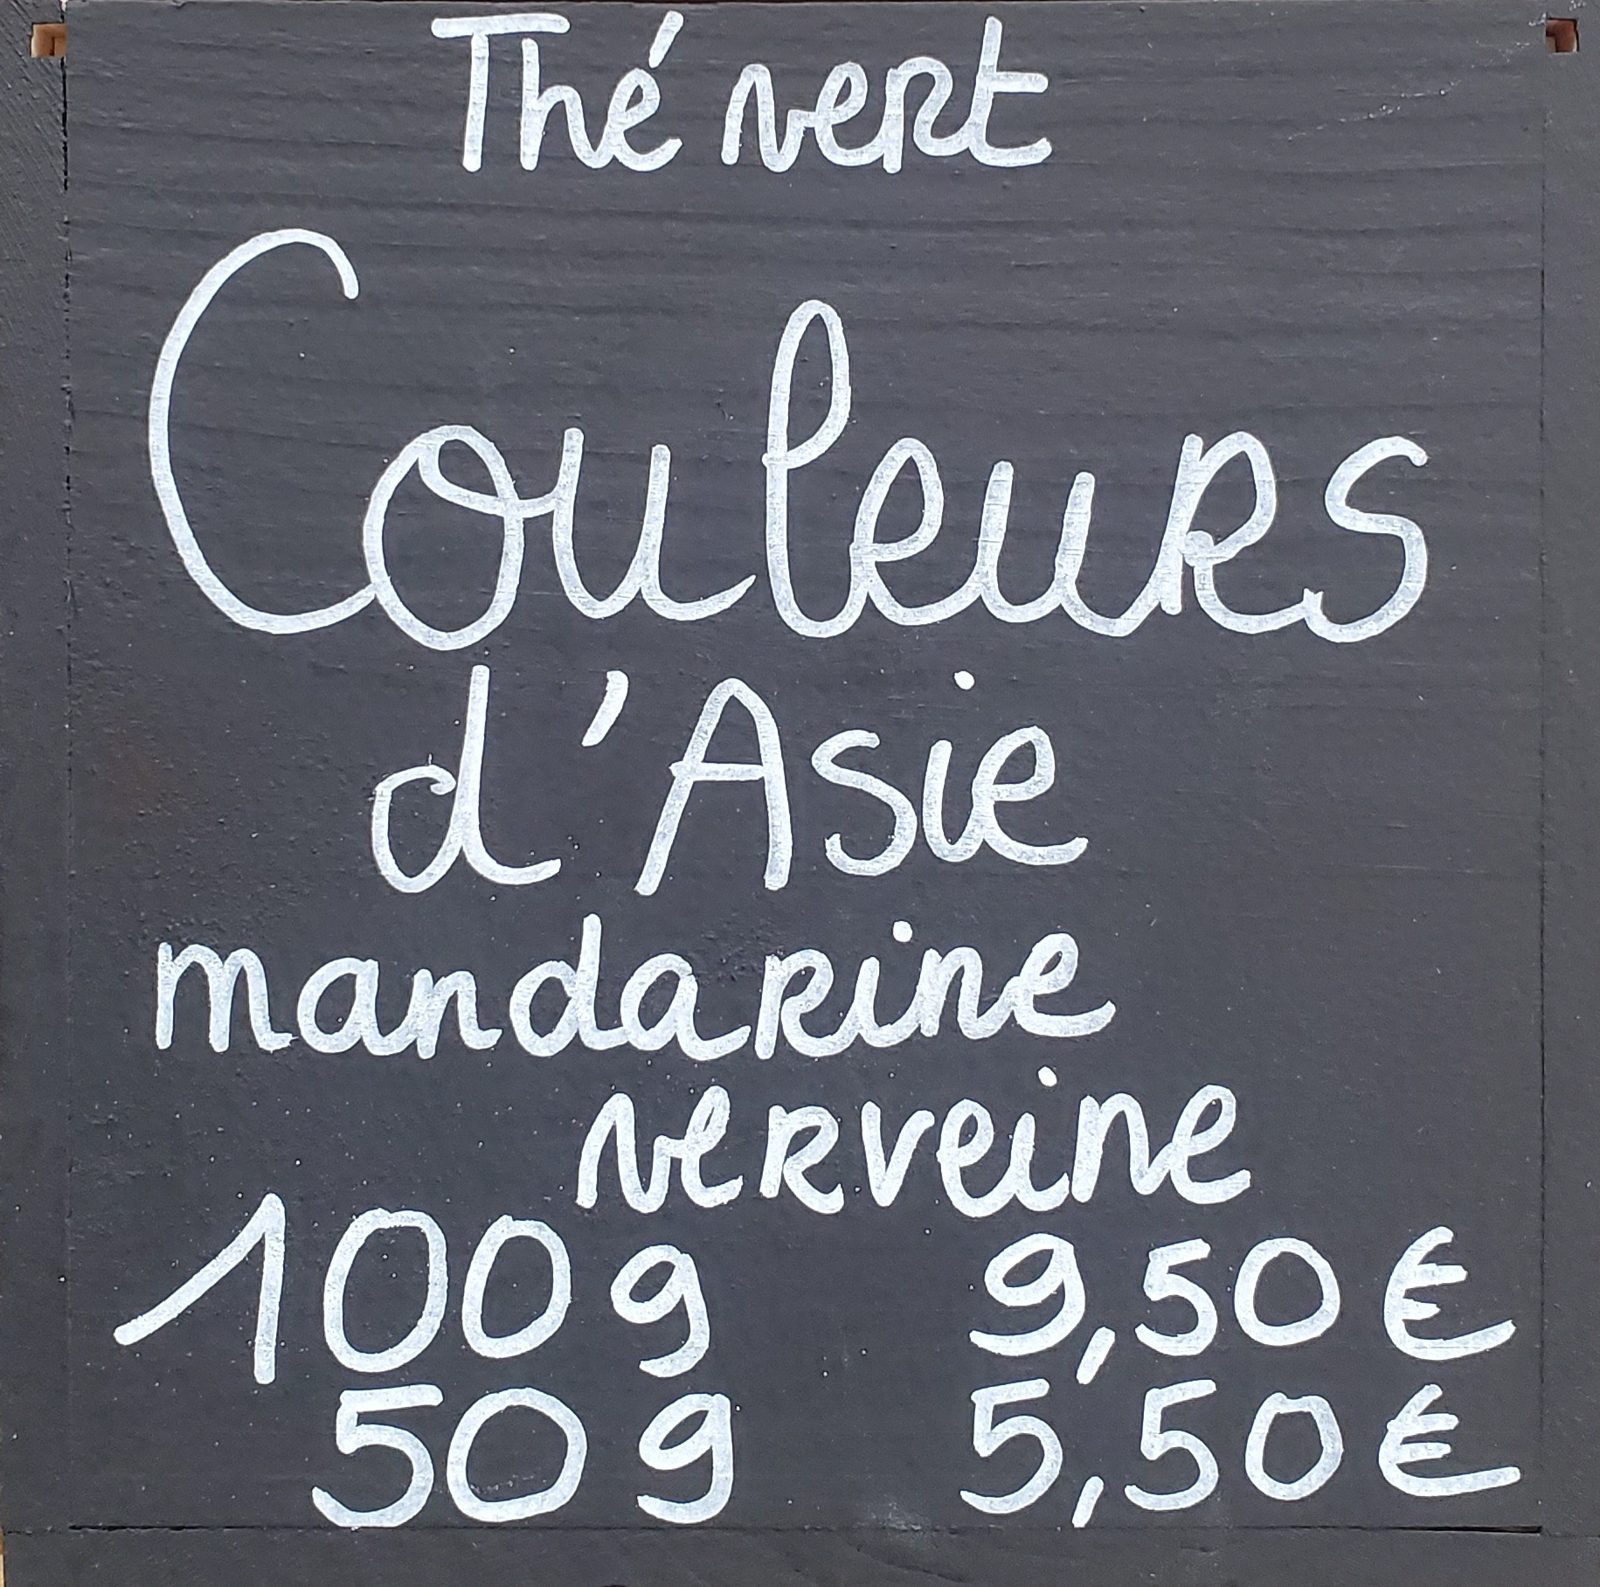 Thé vert
Couleurs
d'Asie
mandarine
verveine
100g 9,50€
50g 5,50€